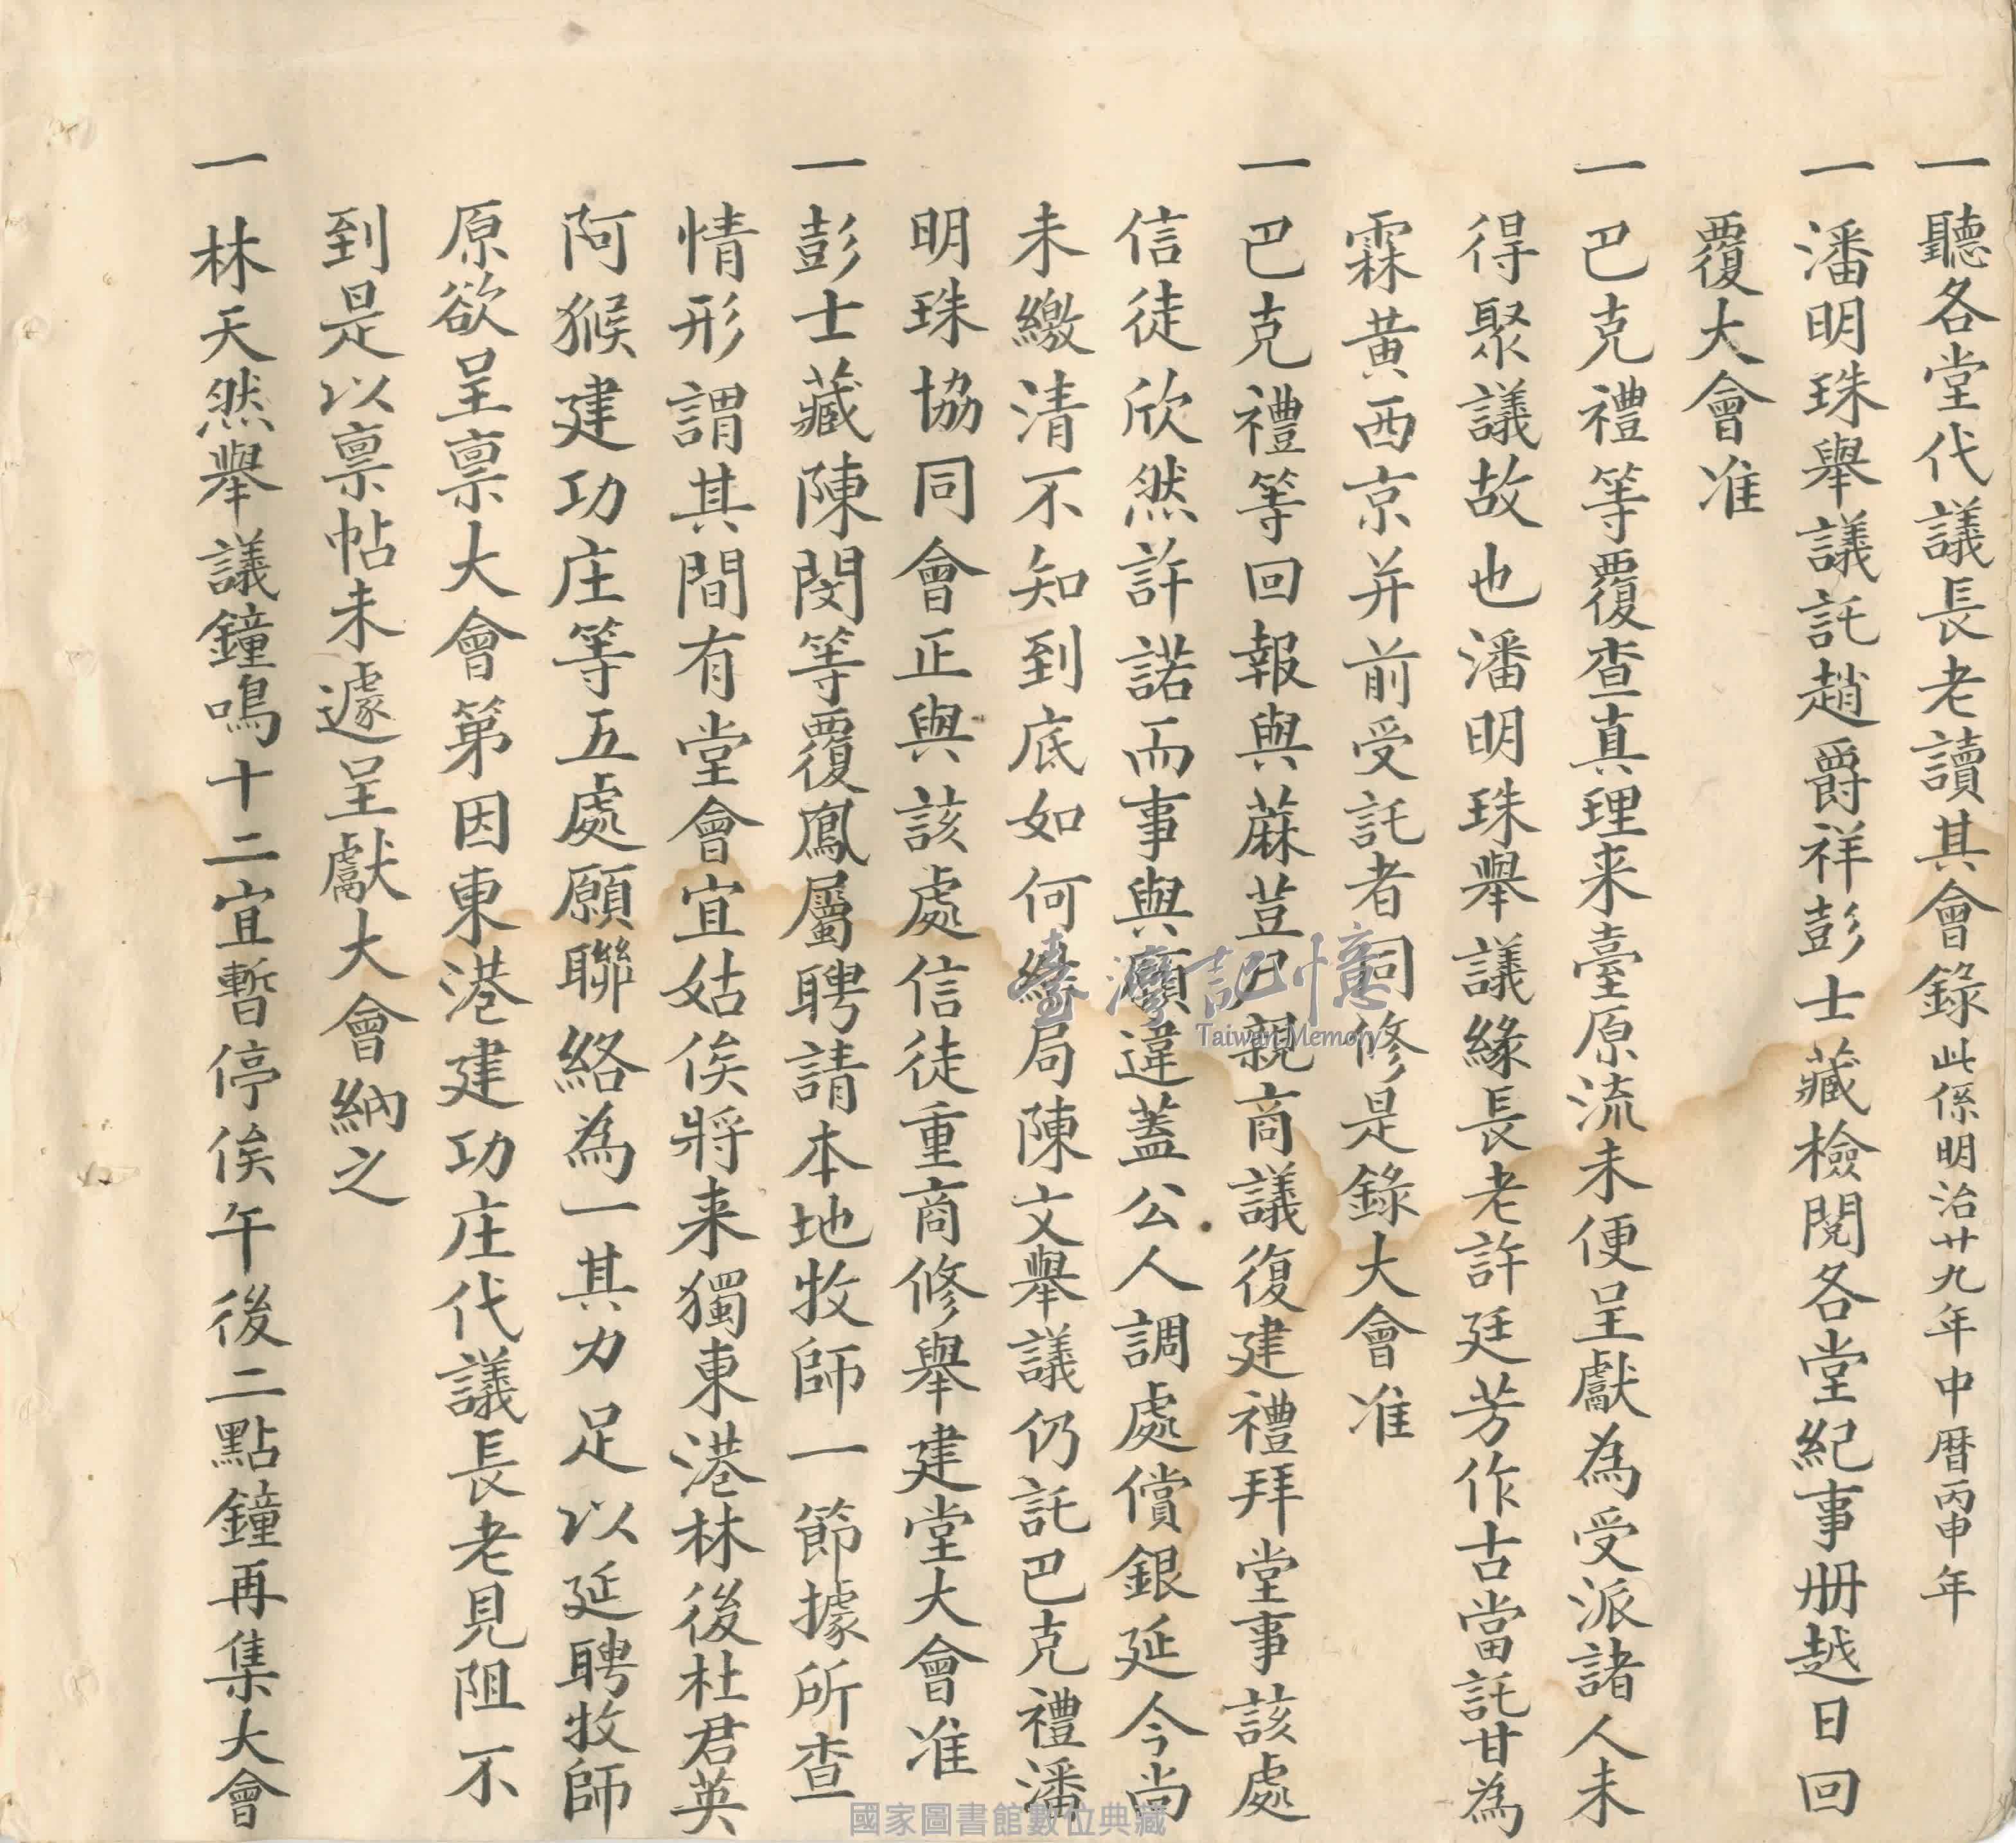 一聽各堂代議長老讀其會錄此係明治廿九年中曆丙申年
一潘明珠舉議託趙爵祥彭士藏檢閱各堂紀事册越日回
覆大會准
一巴克禮等覆查真理来臺原流未便呈獻為受派諸人未
得聚議故也潘明珠舉議緣長老許廷芳作古當託甘為
霖黃西京并前受託者同修是錄大會准
一巴克禮等回報與蔴荳已親商議復建禮拜堂事該處
信徒欣然許諾而事與願違蓋公人調處償銀延今尚
未繳清不知到底如何結局陳文舉議仍託巴克禮潘
明珠協同會正與該處信徒重商修舉建堂大會准
一彭士藏陳閔等覆鳳屬聘請本地牧師一節據所查
情形謂其間有堂會宜姑俟將来獨東港林後杜君英
阿猴建功庄等五處願聯絡為一其力足以延聘牧師
原欲呈禀大會第因東港建功庄代議長老見阻不
到是以禀帖未遽呈獻大會納之
一林天然舉議鐘鳴十二宜暫停俟午後二點鐘再集大會
臺灣記憶
Taiwan Memory
國家圖書館數位典藏